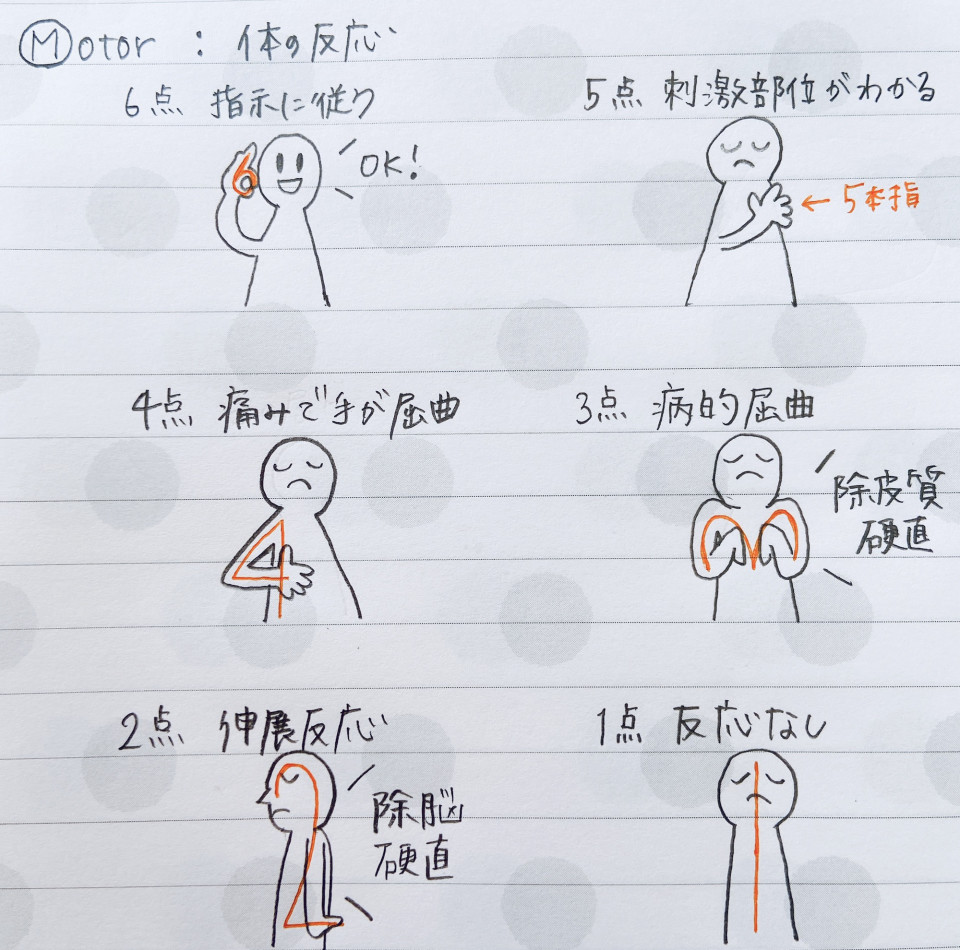 Motor : 体の反応
6点 指示に従う
5点 刺激部位がわかる
6
OK!
← 5本指
4点 痛みで手が屈曲
3点 病的屈曲
4
除皮質
硬直
3
2点 伸展反応
1点 反応なし
2
除脳
硬直
1